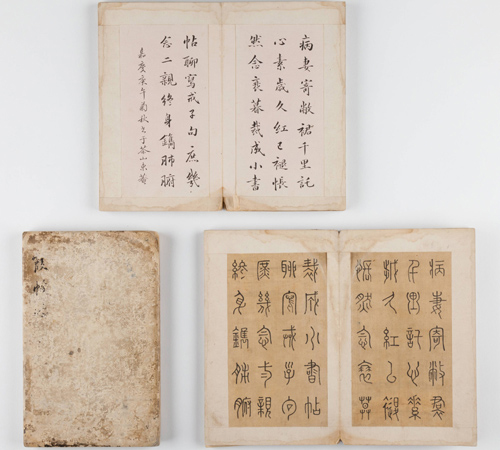 病妻寄敝裙千里託
心素歲久紅已褪悵
然念衰暮裁成小書
帖聊寫戒子句庶幾
念二親終身鐫肺腑
嘉慶庚午菊秋書于茶山東菴
病妻寄敝裙
千里託心素
歲久紅已褪
悵然念衰暮
裁成小書帖
聊寫戒子句
庶幾念二親
終身鐫肺腑